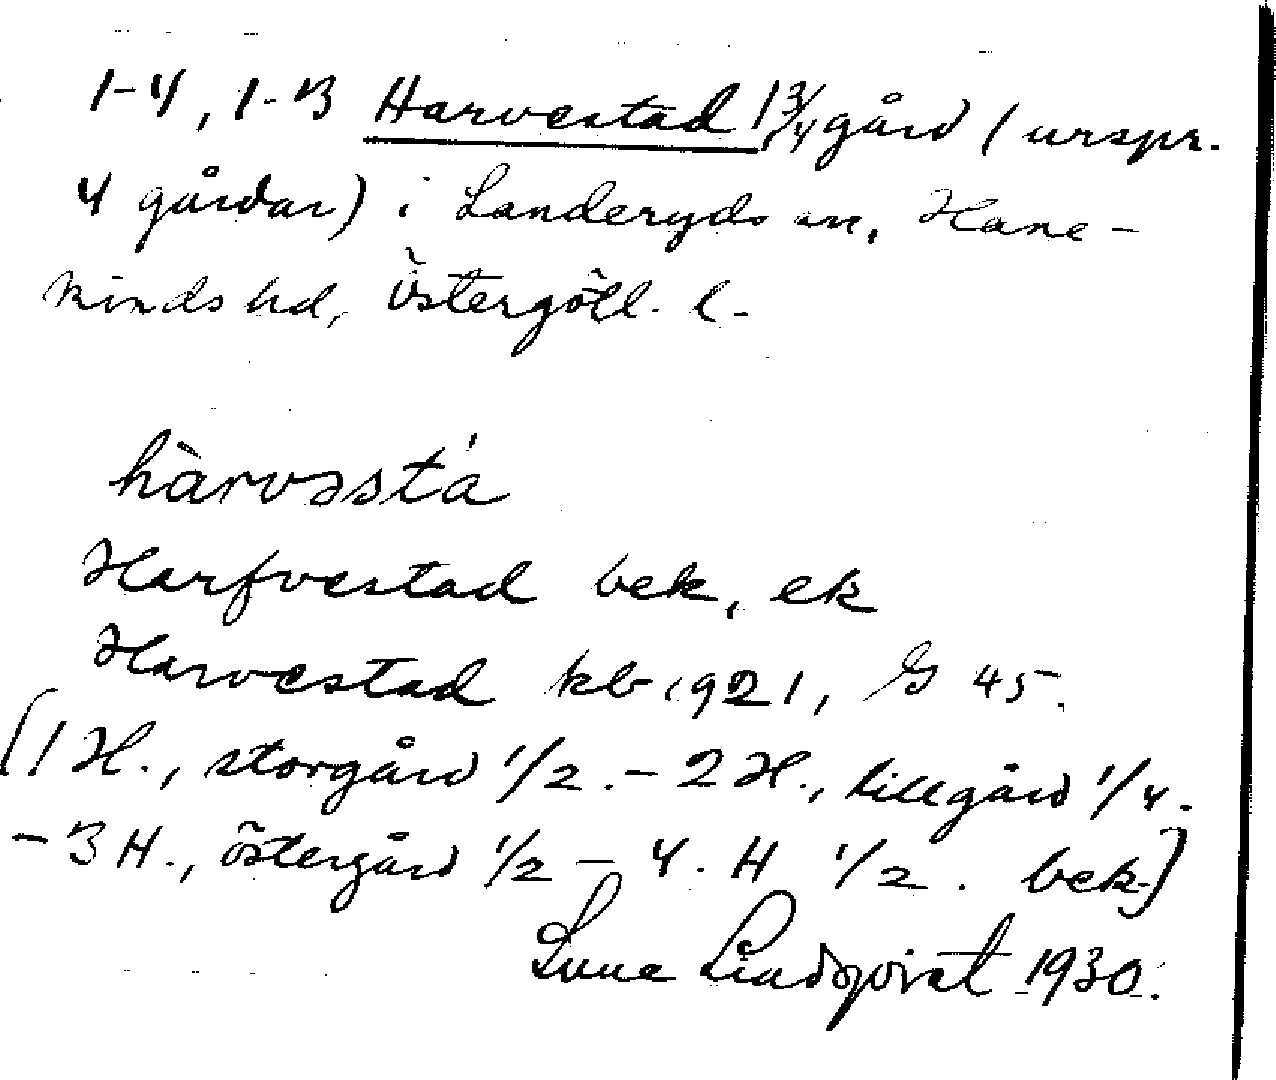 1-4, 1-3 Harvestad 1 3/4 gård (urspr.
4 gårdar) i Landeryds sn, Hane-
kinds hd, Östergötl. l.
hàrvəsstá
Harfvestad bek, ek
Harvestad kb 1921, G 45.
[1 H., storgård 1/2. - 2 H., lillgård 1/4.
- 3 H., östergård 1/2 - 4. H 1/2. bek.]
Sune Lindqvist 1930.